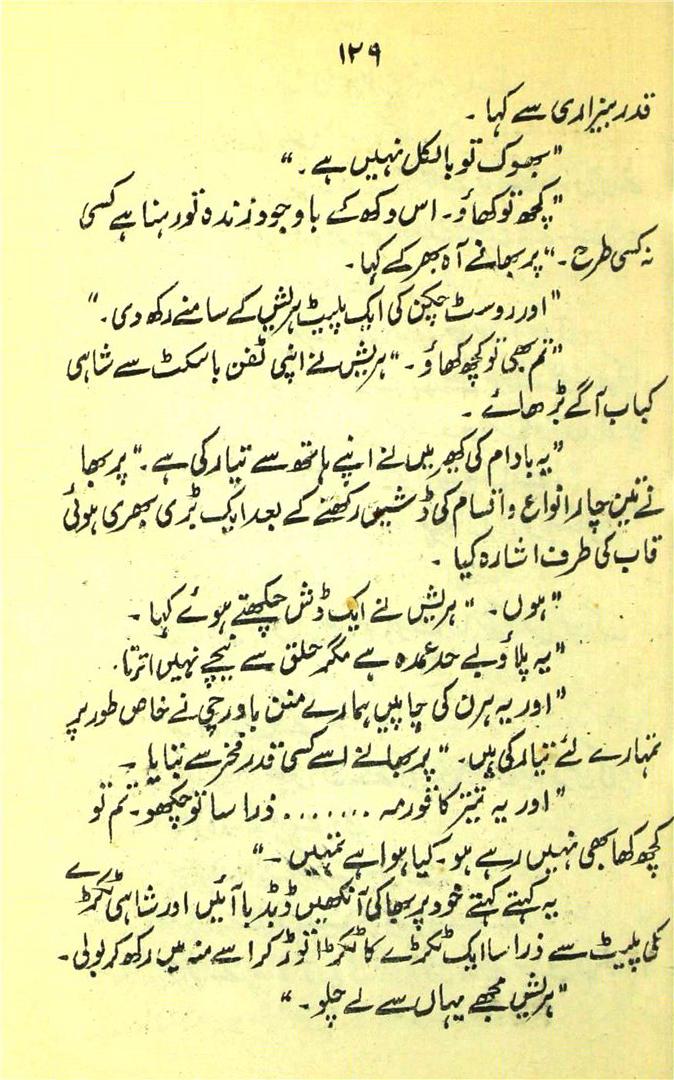 ۱۲۹
قدر بیزاری سے کہا ۔
"بھوک تو بالکل نہیں ہے ۔"
"کچھ تو کھاؤ ۔ اس دکھ کے باوجود زندہ تو رہنا ہے کسی
نہ کسی طرح ۔" پربھا نے آہ بھر کے کہا ۔
"اور روسٹ چکن کی ایک پلیٹ ہریش کے سامنے رکھ دی ۔"
"تم بھی تو کچھ کھاؤ ۔" ہریش نے اپنی ٹفن باسکٹ سے شاہی
کباب آگے بڑھائے ۔
"یہ بادام کی کھیر میں نے اپنے ہاتھ سے تیار کی ہے ۔" پربھا
نے تین چار انواع و اقسام کی ڈشیں رکھنے کے بعد ایک بڑی بھری ہوئی
قاب کی طرف اشارہ کیا ۔
"ہوں ۔" ہریش نے ایک ڈش چکھتے ہوئے کہا ۔
"یہ پلاؤ بے حد عمدہ ہے مگر حلق سے نیچے نہیں اترتا ۔
"اور یہ ہرن کی چانپیں ہمارے مٹن باورچی نے خاص طور پر
تمہارے لئے تیار کی ہیں ۔" پربھا نے اسے کسی قدر فخر سے بتایا ۔
"اور یہ تیتر کا قورمہ ....... ذرا سا تو چکھو ۔ تم تو
کچھ کھا بھی نہیں رہے ہو ۔ کیا ہوا ہے تمہیں ۔"
یہ کہتے کہتے خود پربھا کی آنکھیں ڈبڈبا آئیں اور شاہی ٹکڑے
کی پلیٹ سے ذرا سا ایک ٹکڑے کا ٹکڑا توڑ کر اسے منہ میں رکھ کر بولی ۔
"ہریش مجھے یہاں سے لے چلو ۔"